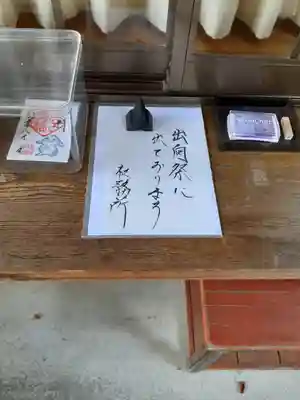 出向祭に
出ております
社務所